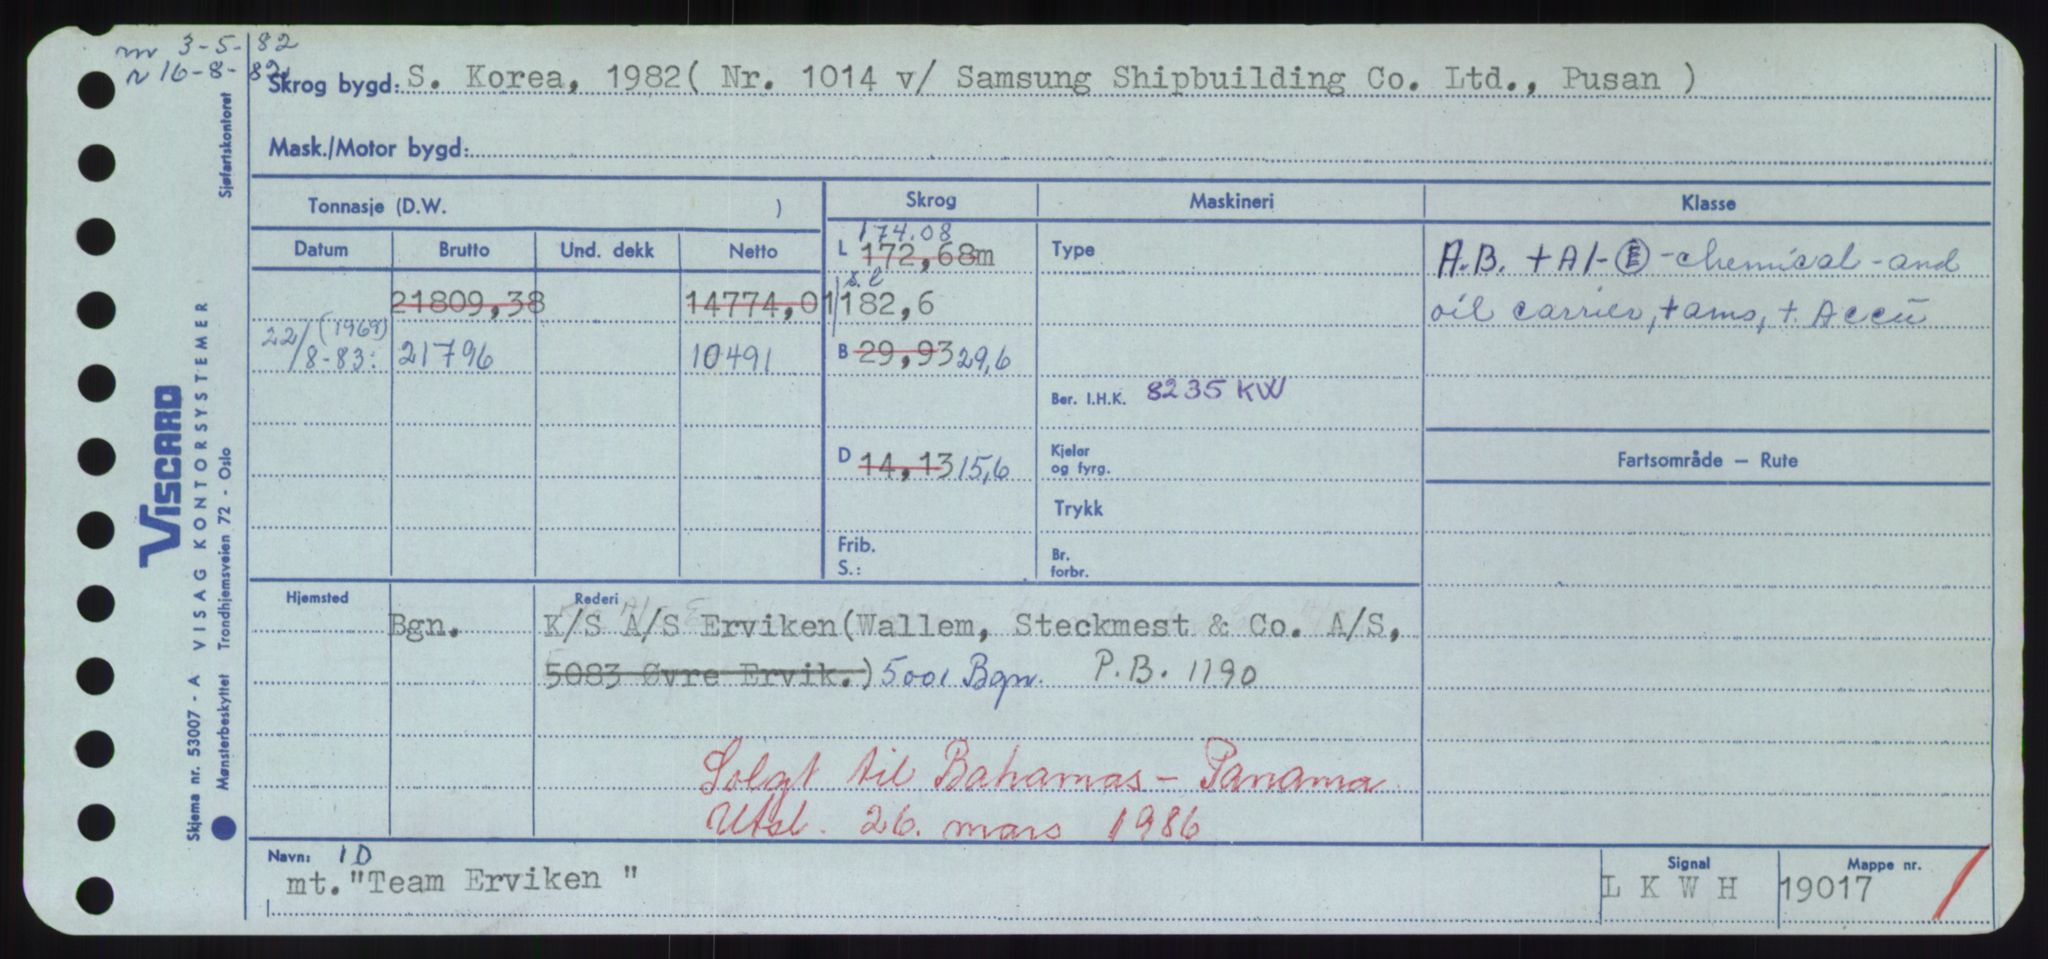 m 3-5-82
n 16-8-82
Skrog bygd: S. Korea, 1982( Nr. 1014 v/ Samsung Shipbuilding Co. Ltd., Pusan )
Mask./Motor bygd:
Sjøfartskontoret
Tonnasje (D.W. )
Skrog
Maskineri
Klasse
Datum
Brutto
Und. dekk
Netto
174.08
L 172,68m
s.l
21809,38
14774,01
182,6
22/8-83: (1969)
21796
10491
B 29,93 29,6
D 14,13 15,6
Frib.
S.:
Type
Ber. I.H.K. 8235 KW
Kjeler
og fyrg.
Trykk
Br.
forbr.
A.B. + A1-Ⓔ-chemical-and
oil carrier, + ams, + Accu
Fartsområde — Rute
Hjemsted
Rederi
Bgn.
K/S A/S Erviken(Wallem, Steckmest & Co. A/S,
5083 Øvre Ervik.) 5001 Bgn. P.B. 1190
Solgt til Bahamas - Panama
Utsl. 26. mars 1986
Navn: ID
mt."Team Erviken "
Signal
L K W H
Mappe nr.
19017
VISCARD
VISAG KONTORSYSTEMER
Skjema nr. 53007 - A
Mønsterbeskyttet Trondhjemsveien 72 - Oslo